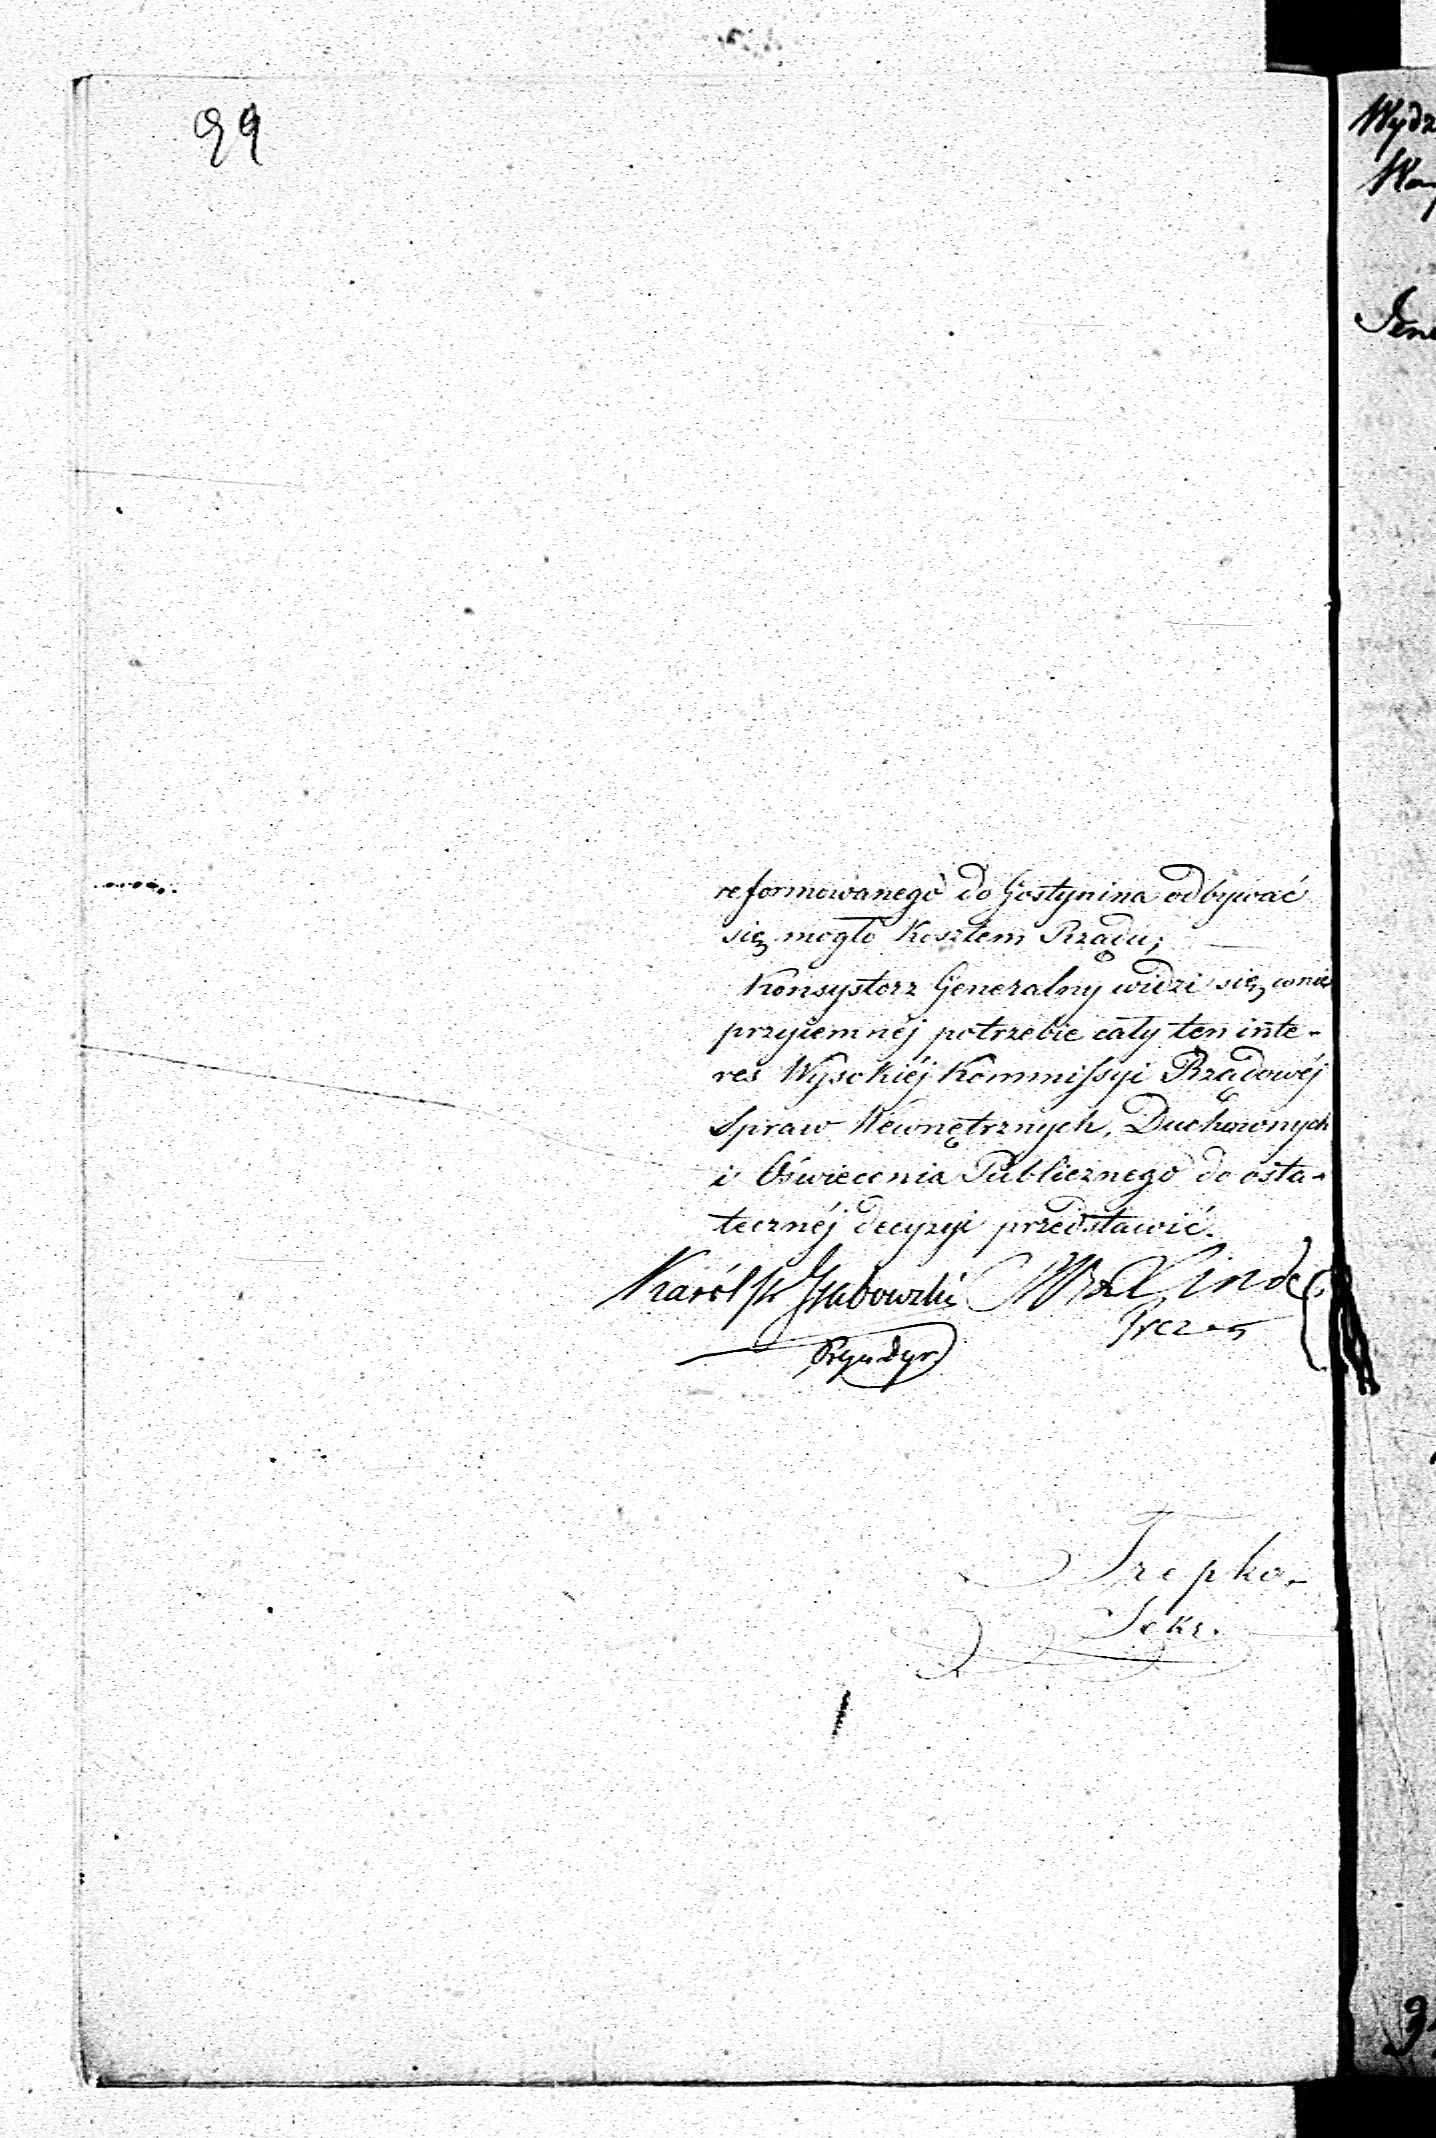 99
reformowanego do Gostynina odbywać
się mogło Kosztem Rządu;
Konsystorz Generalny widzi się w nie
przyiemnéj potrzebie cały ten inte-
res Wysokiéj Kommissyi Rządowéj
Spraw Wewnętrznych, Duchownych
i Oświecenia Publicznego do osta-
tecznéj decyzyi przedstawić.
Karól Linde
Prezes
Trepka
Sekr.
Wydz